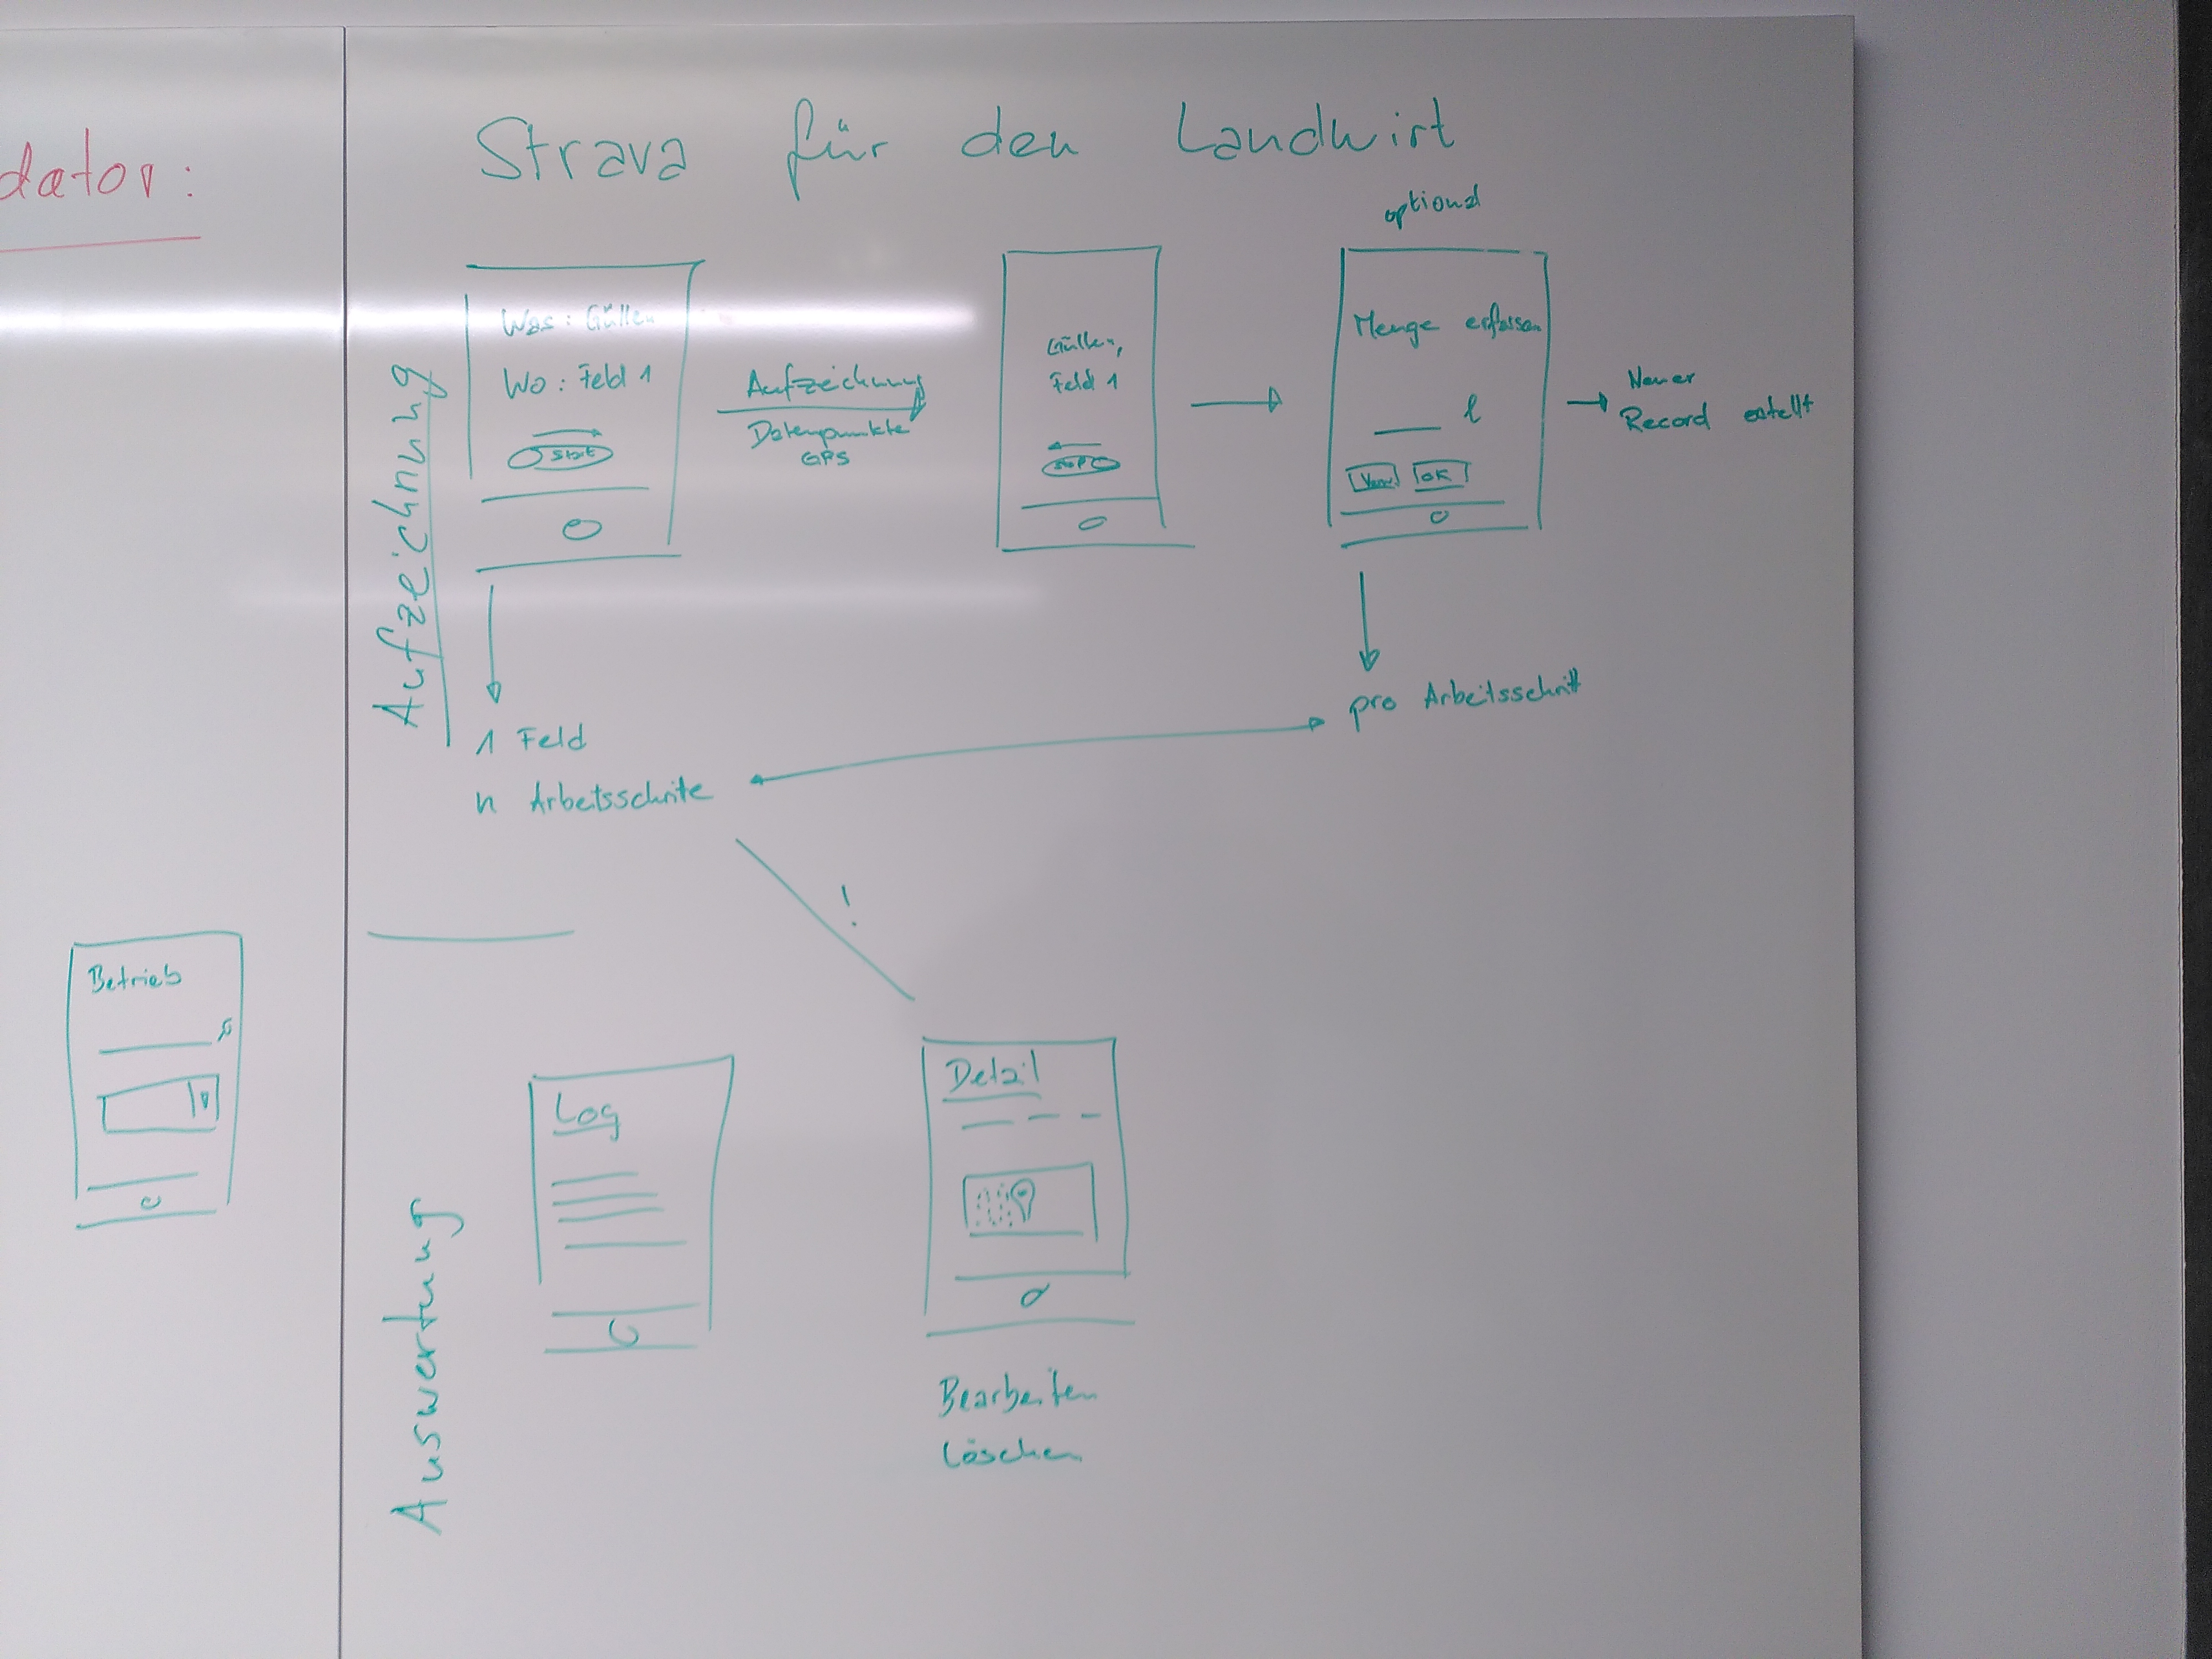 dator:
Strava für den Landwirt
optional
Aufzeichnung
Was: Güllen
Wo: Feld 1
Start
Aufzeichnung
Datenpunkte
GPS
Güllen,
Feld 1
Stop
Menge erfassen
l
OK
Neuer
Record estellt
1 Feld
n Arbeitsschrite
pro Arbeitsschritt
!
Betrieb
Auswertung
Log
Detail
Bearbeiten
Löschen